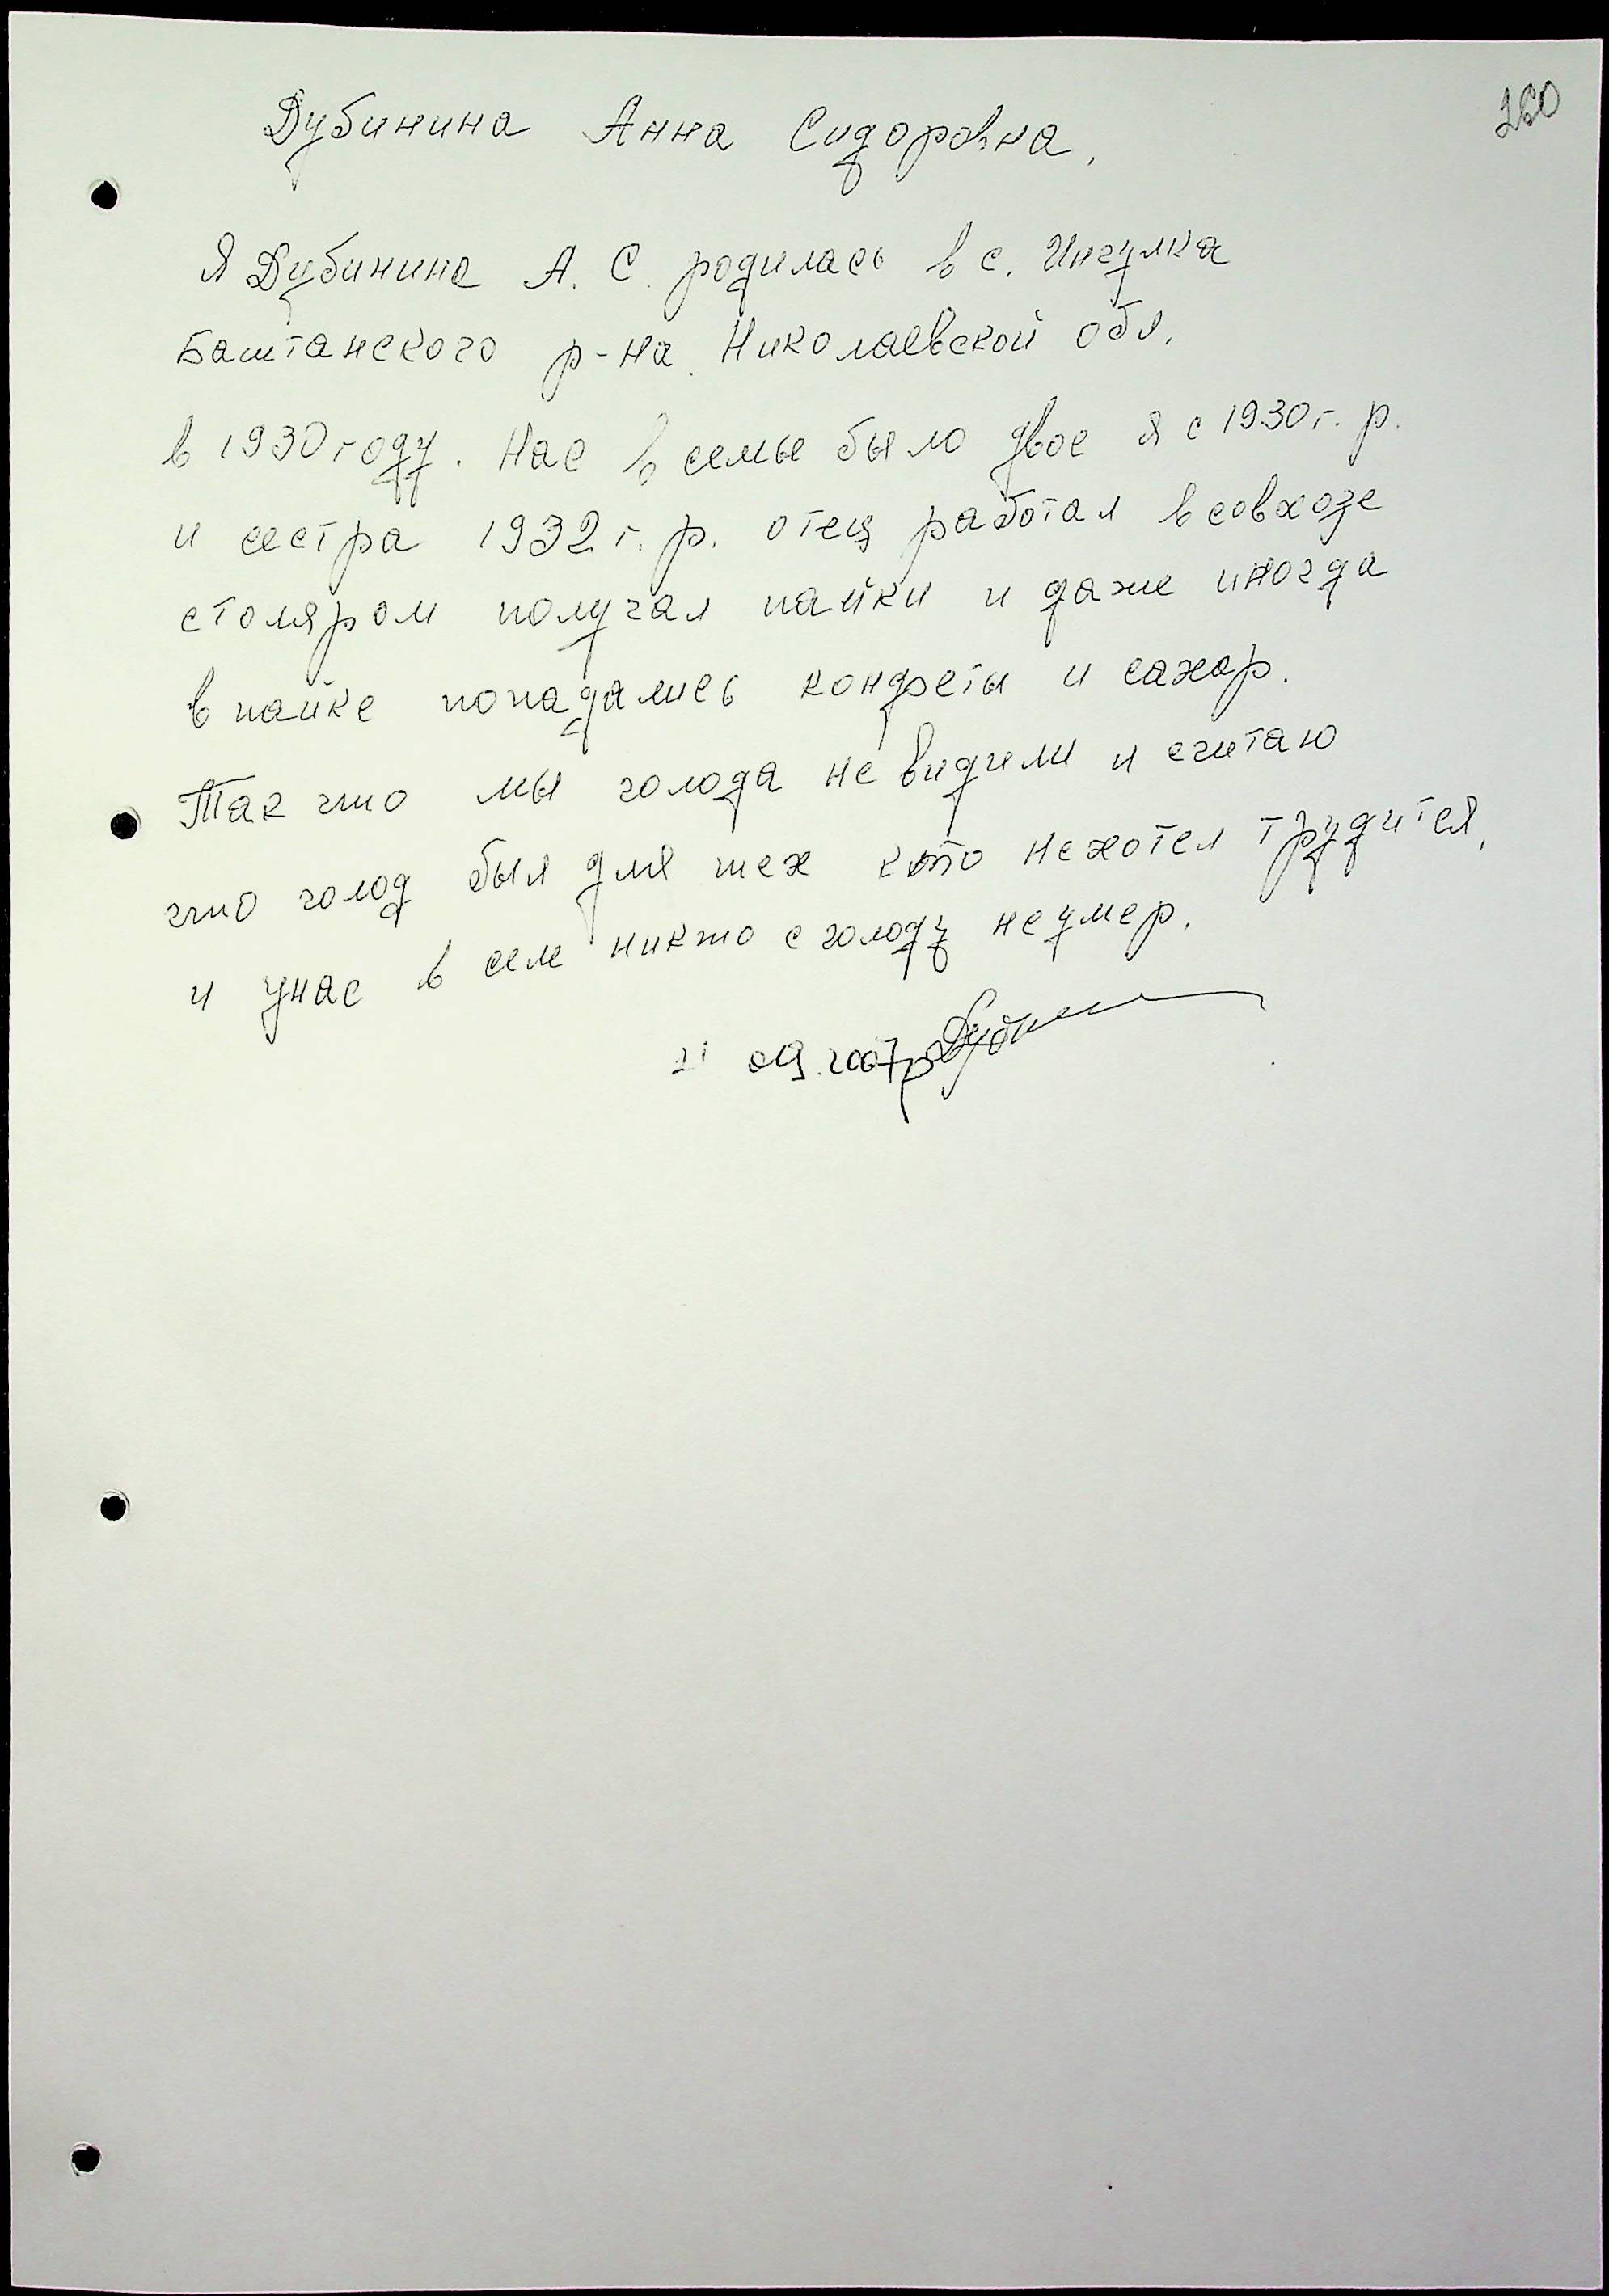 260
Дубинина Анна Сидоровна,
Я Дубинина А. С. родилась в с. Ингулка
Баштанского р-на. Николаевской обл.
в 1930 году. Нас в семье было двое я с 1930 г. р.
и сестра 1932 г. р. отец работал в совхозе
столяром получал пайки и даже иногда
в пайке попадались конфеты и сахар.
Так что мы голода не видили и считаю
что голод был для тех кто нехотел трудится,
и унас в селе никто с голоду не умер.
09.2007р